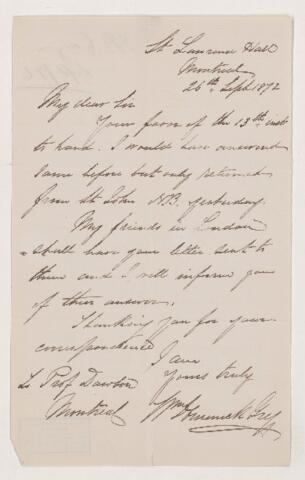 St Lawrence Hall
Montreal
26th Sept 1872
My dear Sir
Your favor of the 13th inst
to hand. I would have answered
same before but only returned
from St John N.B. yesterday.
My friends in London
shall have your letter sent to
them and I will inform you
of their answer.
Thanking you for your
correspondence
I am
Yours truly
Wm
To Prof Dawson
Montreal